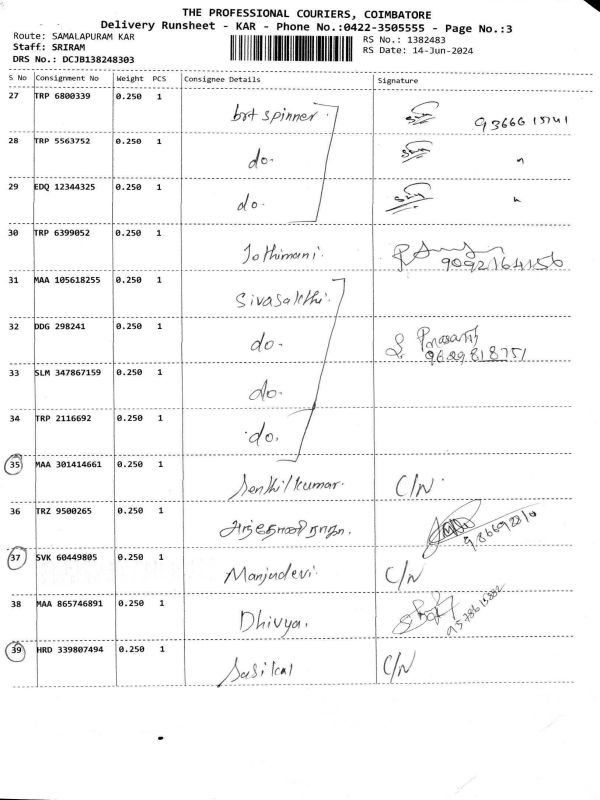 THE PROFESSIONAL COURIERS, COIMBATORE
Delivery Runsheet - KAR - Phone No.:0422-3505555 - Page No.:3
Route: SAMALAPURAM KAR
RS No.: 1382483
Staff: SRIRAM
RS Date: 14-Jun-2024
DRS No.: DCJB138248303
S No Consignment No Weight PCS Consignee Details Signature
27 TRP 6800339 0.250 1 brt spinner.
28 TRP 5563752 0.250 1 do.
29 EDQ 12344325 0.250 1 do.
30 TRP 6399052 0.250 1 Jothimani. 9092164156
31 MAA 105618255 0.250 1 Sivasakthi
32 DDG 298241 0.250 1 do. 9629818751
33 SLM 347867159 0.250 1 do.
34 TRP 2116692 0.250 1 do.
35 MAA 301414661 0.250 1 Senthilkumar. C/N.
36 TRZ 9500265 0.250 1
37 SVK 60449805 0.250 1 Manjudevi. C/N
38 MAA 865746891 0.250 1 Dhivya.
39 HRD 339807494 0.250 1 Sasikal C/N